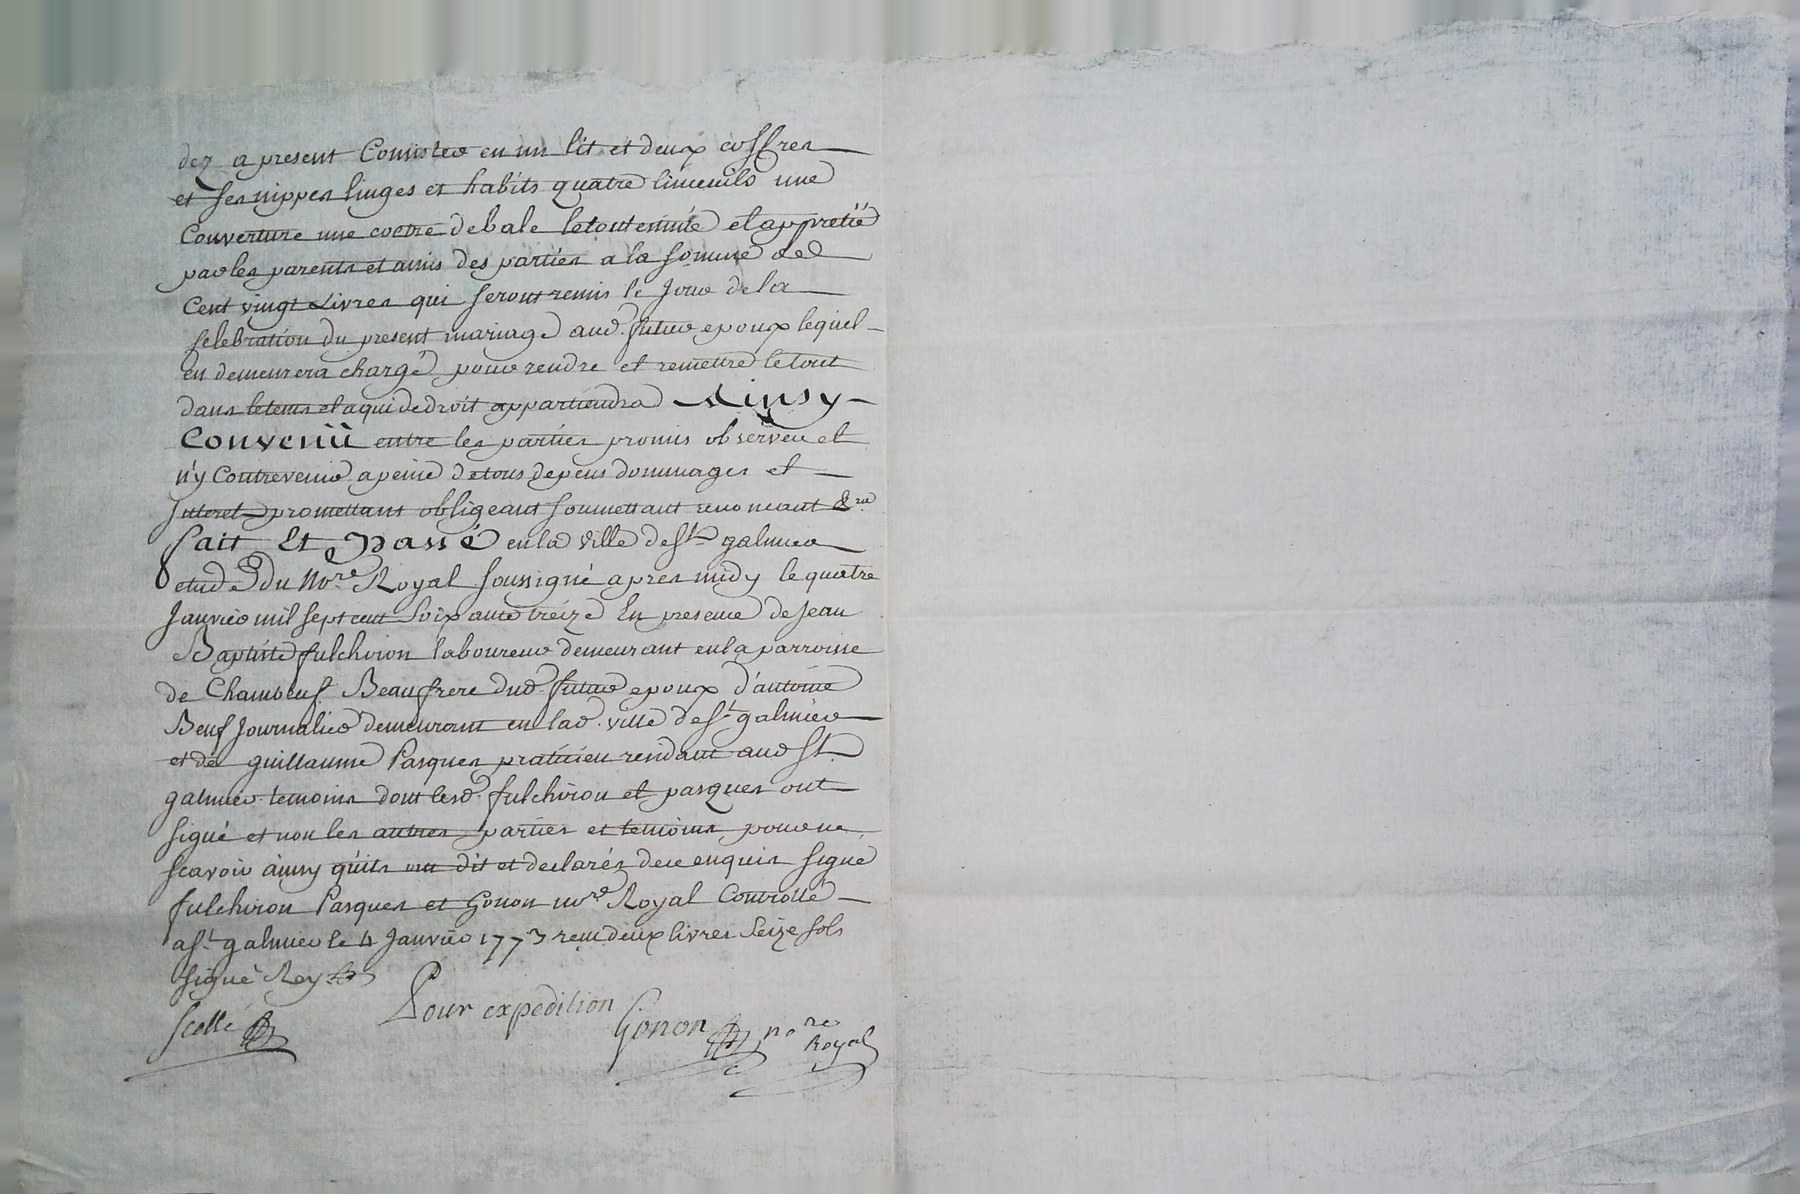 dez a present Consister en un lit et deux coffres
et ses nippes linges et habits quatre linceuils une
Couverture une coetre de bale le tout estimé et appretié
par les parents et amis des parties a la somme de
Cent vingt Livres qui seront remis le Jour de la
selebration du present mariage aud. futur epoux lequel
en demeurera chargé pour rendre et remettre le tout
dans le tems et a qui de droit appartiendra Ainsy
Convenü entre les parties promis observer et
n'y Contrevenir a peine de tous depens dommages et
Interet promettant obligeant soumettant renoncant &ra
fait Et passé en la ville de St galmier
etude du Nore Royal soussigné apres midy le quatre
Janvier mil sept cent soixante treize En presence de Jean
Baptiste fulchiron laboureur demeurant en la parroisse
de Chambeuf Beaufrere dud. futur epoux d'antoine
Beuf Journalier demeurant en lad. ville de St galmier
et de guillaume Pasques praticien residant aud St
galmier temoins dont lesd. fulchiron et pasques ont
signé et non les autres parties et temoins pour ne
scavoir ainsy qu'ils ont dit et declarés de ce enquis signé
fulchiron Pasques et Gonon nore Royal Controllé
a St galmier le 4 Janvier 1773 reçu deux livres Seize sols
signé Rey
Pour expedition
Scellé Gonon nore
Royal